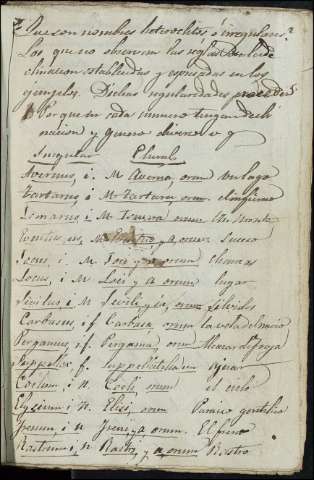 Que son nombres heteroclitos ó irregulares?
Los que no observan las reglas de declinacion
clinacion establecidas y espresadas en los
ejemplos. Dichas irregularidades proceden
1 Por que en cada numero tengan decli
nacion y genero diverso v g
Singular Plural
Avernus, i. M Averna, orum un lago
Tartarus, i M Tartara orum el infierno
Ismarus, i M Ismara orum Un Monte
Pontus, us, M y a orum
Jocus, i M Joci y a orum chanzas
Locus, i M Loci y a orum lugar
Sibilus, i M Sibili y a, orum Silvido
Carbasus, i f Carbasa, orum la vela del navio
Pergamus, i f Pergama, orum Alcazar de Troya
Suppellex f. Suppellectilia ium Ajuar
Coelum, i n. Coeli, orum el cielo
Elysium i n. Elisi, orum Paraiso gentilico
Frenum, i n Freni, y a orum. El freno
Rastrum, i n Rastri, y a orum Rastro